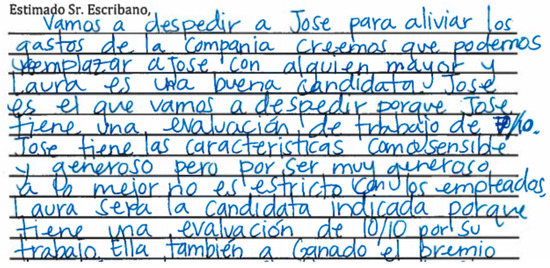 Estimado Sr. Escribano,
Vamos a despedir a Jose para aliviar los
gastos de la Compania Creemos que podemos
reemplazar a Jose con alguien mayor y
Laura es una buena candidata, Jose
es el que vamos a despedir porque Jose
tiene una evaluación de trabajo de 7/10.
Jose tiene las caracteristicas como sensible
y generoso pero por ser muy generoso
a lo mejor no es estricto con los empleados,
Laura sera la candidata indicada porque
tiene una evaluación de 10/10 por su
trabajo. Ella también a Ganado el premio